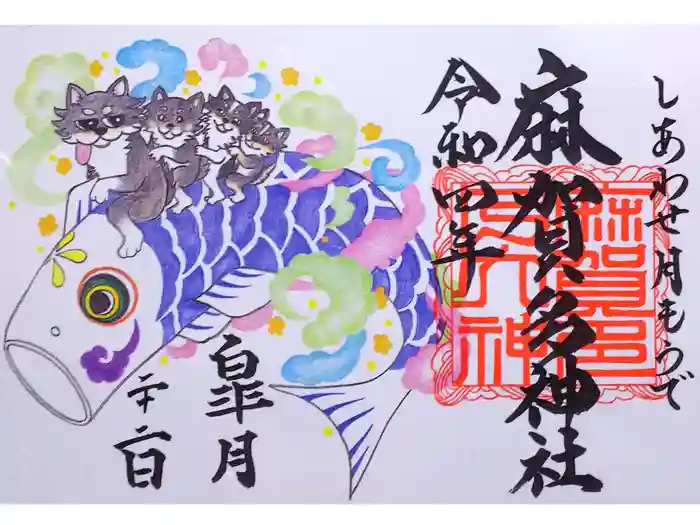 しあわせ月もうで
麻賀多神社
令和四年
皐月
二十二日
麻賀多